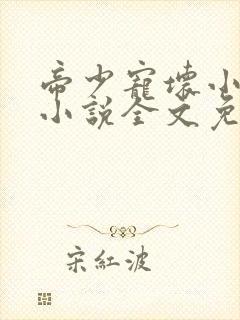 帝少寵壞小
小說全文免
宋紅波